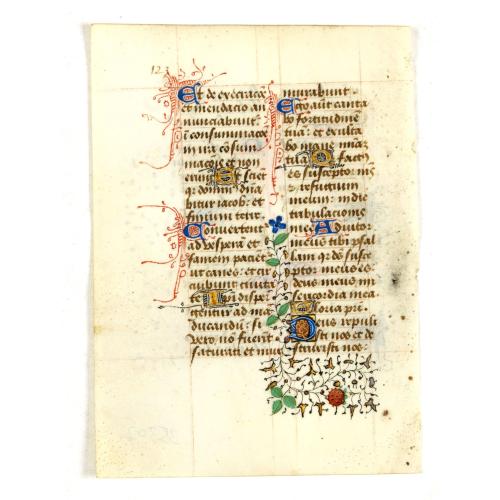 123
Et de execracōe
et mendacio an
nunciabunt
ī consummacōe
in ira cōsum
macōis et non
erunt Et sciēt
q̄ dominā
bitur iacob: et
finium terre
Convertent
ad vesperā et
famem paciēt
ut canes: et cir
cuibunt civita
tē Ipi disper
gentur ad mā
ducandū: si
vero nō fuerīt
saturati et mur
murabunt
Ego aūt canta
bo fortitudinē
tuā: et exulta
bo mane
Q factꝰ
es susceptor mꝰ
et refugium
meum: in die
tribulacionis
mee Adiutor
meus tibi psal
lam: q̄ de susce
ptor meus es
deus meus mi
sericordia mea
Deus repuli
sti nos et de
struxisti nos: